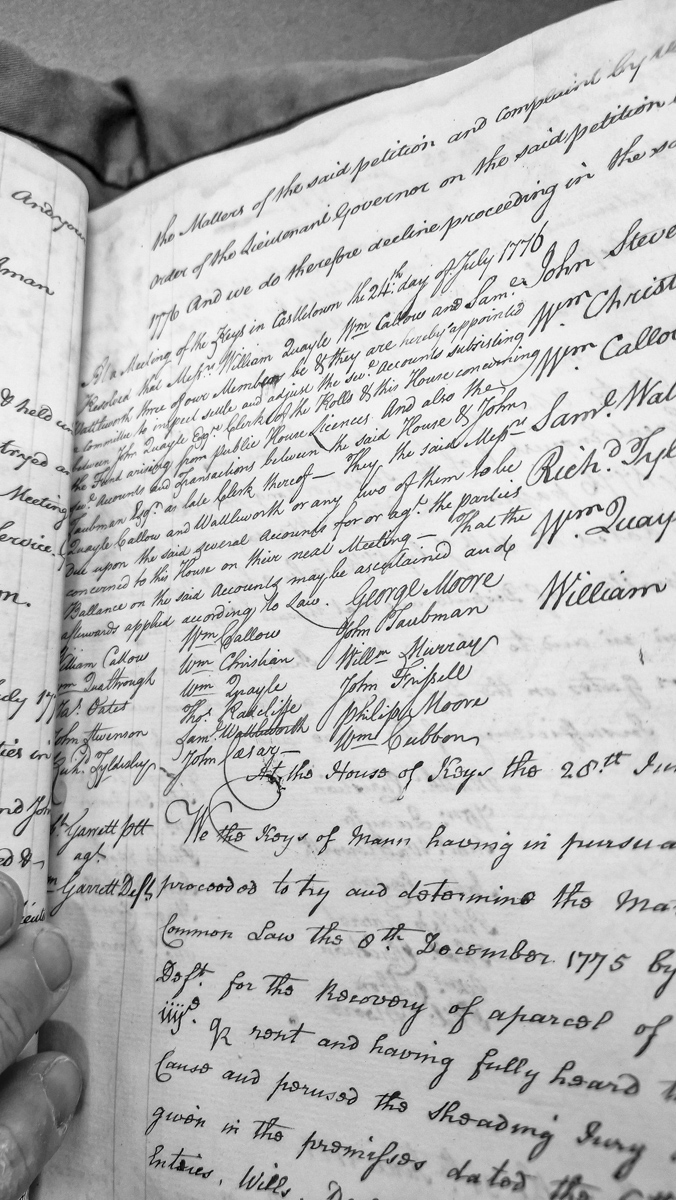 the Matters of the said petition and complaint by
order of the Lieutenant Governor on the said petition
1776 And we do therefore decline proceeding in the
At a Meeting of the Keys in Castletown the 24th. day of July 1776
Resolved that Messrs. William Quayle Wm Callow and Saml.
Wattleworth three of our Members be & they are hereby appointed
a Committee to inspect settle and adjust the sevl. Accounts subsisting
between John Quayle Esqr. Clerk of the Rolls & this House concerning
the Fund arising from public House Licences. And also the
sevl. Accounts and Transactions between the said House & John
Taubman Esqr. as late Clerk thereof — They the said Messrs
Quayle Callow and Wattleworth or any two of them to be
Due upon the said several Accounts for or agt. the parties
concerned to this House on their next Meeting — That the
Ballance on the said Accounts may be ascertained and
afterwards applied according to Law.
John Steve
Wm Christ
Wm Callo
Saml. Wat
Richd. Tyl
Wm. Quay
William
George Moore
Wm Callow
John Taubman
William Callow
Wm Christian
Willm Murray
Wm Qualtrough
Wm Quayle
John Frissell
Thas. Oates
Thos. Radcliffe
Philip Moore
John Stevenson
Saml. Wattleworth
Wm Cubbon
Richd. Tyldesley
John Cæsar —
At the House of Keys the 28th
Garrett Plt
agt.
Garrett Deft
We the Keys of Mann having in pursua
proceeded to try and determine the
Common Law the 8th. December 1775 by
Deft. for the Recovery of a parcel of
iiijd. R rent and having fully heard
Cause and perused the Sheading Jury
given in the premisses dated the
Enteries, Wills,